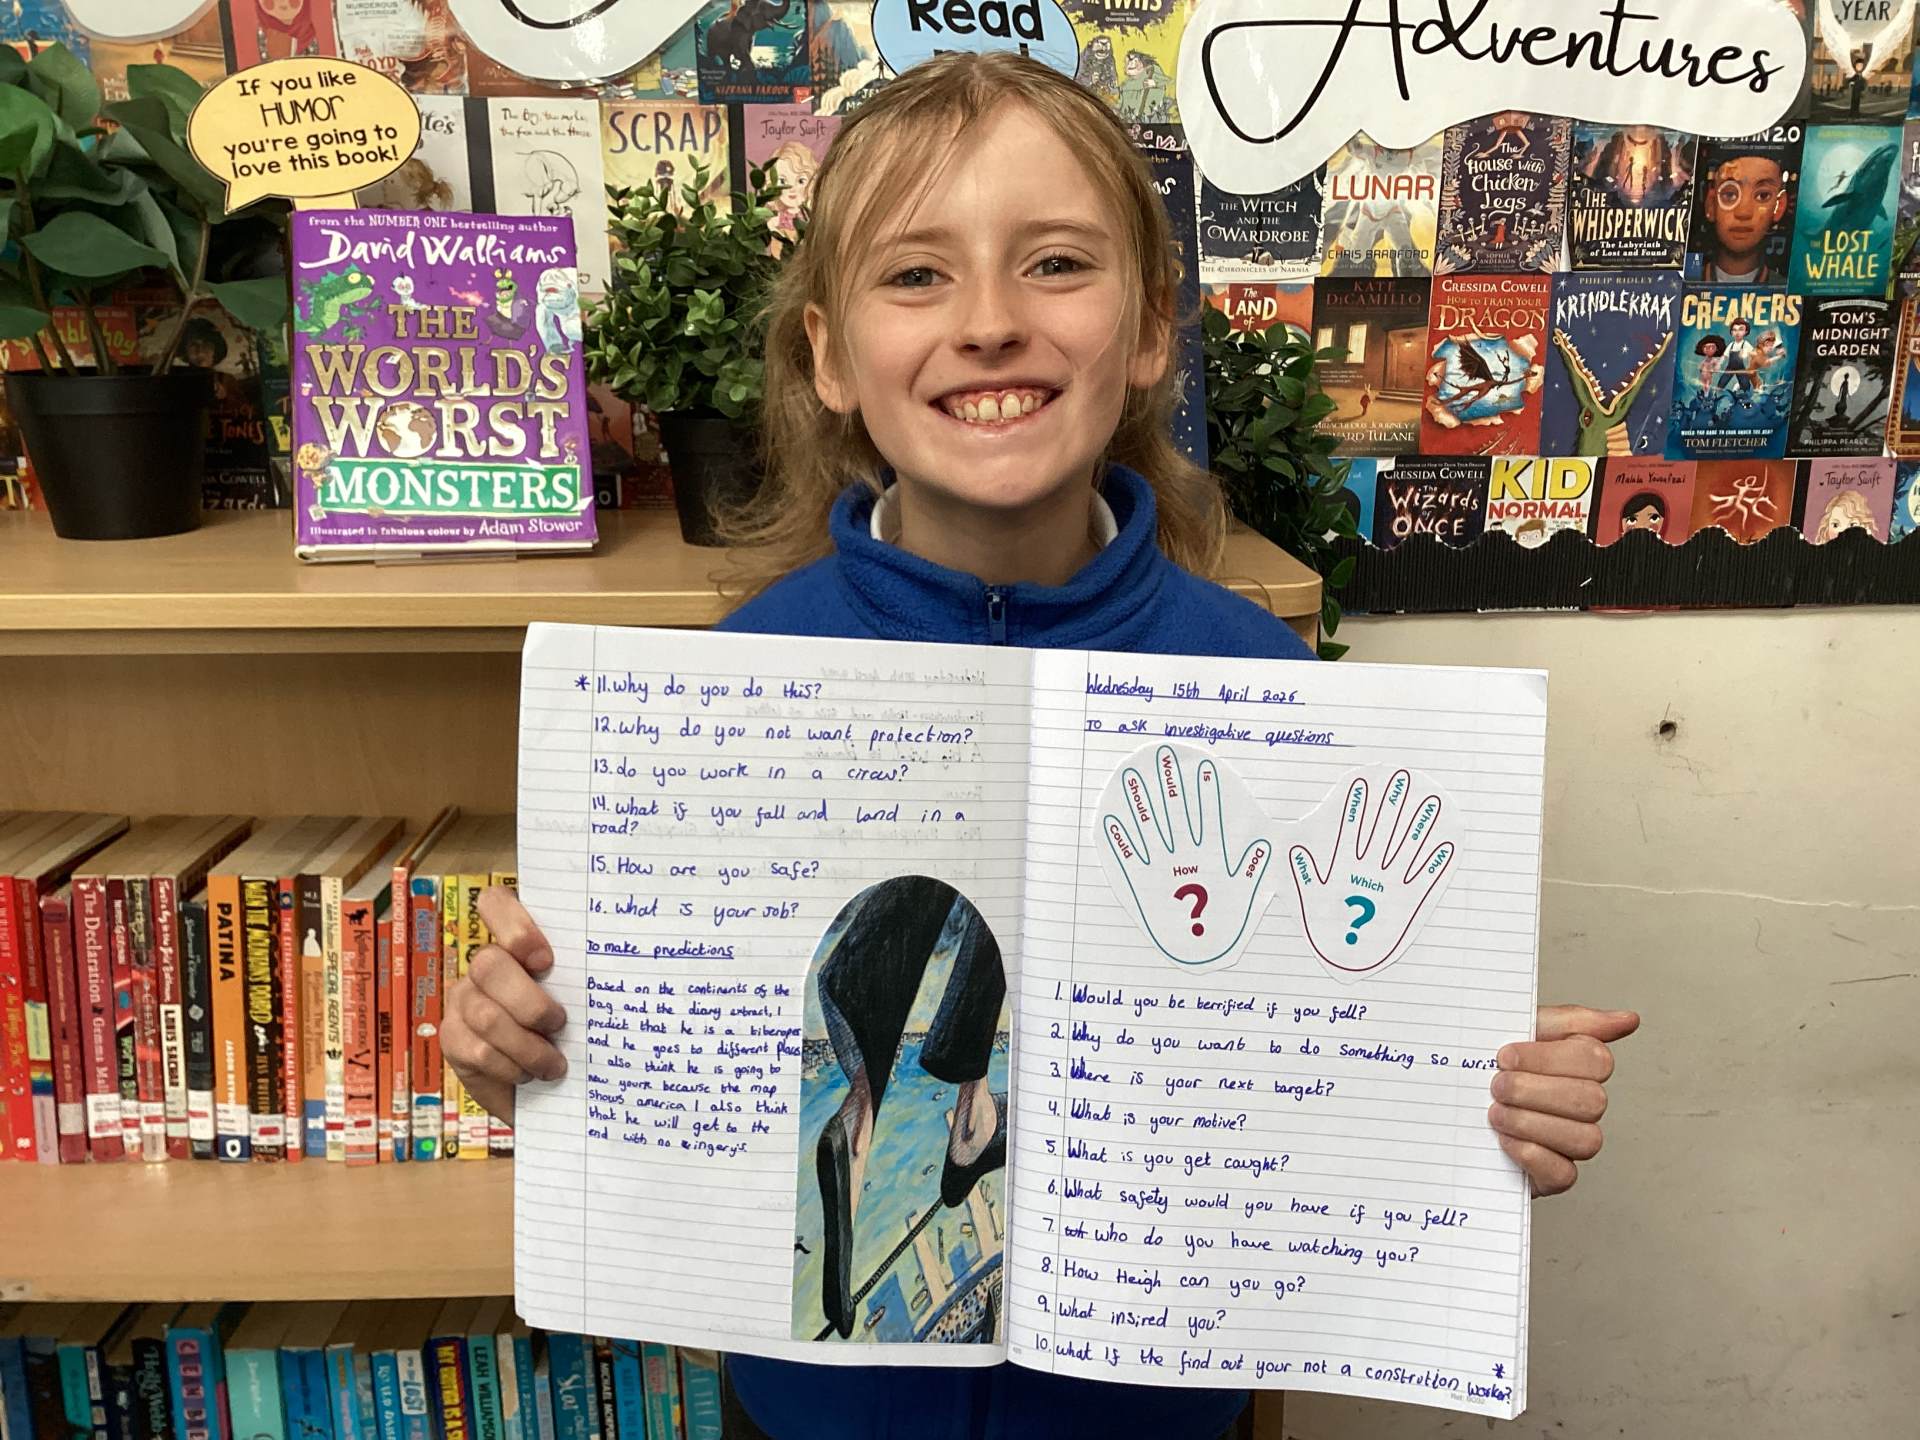 Read
Adventures
YEAR
If you like
HUMOR
you're going to
love this book!
from the NUMBER ONE bestselling author
David Walliams
THE
WORLD'S
WORST
MONSTERS
Illustrated in fabulous colour by Adam Stower
NIZRANA FAROOK
SCRAP
Taylor Swift
THE WITCH
AND THE
WARDROBE
THE CHRONICLES OF NARNIA
LUNAR
CHRIS BRADFORD
The
HOUSE with
Chicken
Legs
SOPHIE ANDERSON
THE
WHISPERWICK
The Labyrinth
of Lost and Found
2.0
THE
LOST
WHALE
The
LAND
of
KATE
DiCAMILLO
MIRACULOUS JOURNEY of
EDWARD TULANE
CRESSIDA COWELL
HOW TO TRAIN YOUR
DRAGON
PHILIP RIDLEY
KRINDLEKRAX
THE
CREAKERS
TOM FLETCHER
TOM'S
MIDNIGHT
GARDEN
PHILIPPA PEARCE
CRESSIDA COWELL
The
Wizards
of
ONCE
KID
NORMAL
Malala Yousafzai
Taylor Swift
* 11. why do you do this?
12. why do you not want protection?
13. do you work in a circus?
14. what if you fall and land in a
road?
15. How are you safe?
16. what is your job?
To make predictions
Based on the continents of the
bag and the diary extract, I
predict that he is a tiberoper
and he goes to different places
I also think he is going to
new yourk because the map
shows america I also think
that he will get to the
end with no ingery's.
Wednesday 15th April 2026
To ask investigative questions
Could
Should
Would
Is
Does
How
?
What
When
Why
Where
Who
Which
?
1. Would you be terrified if you fell?
2. Why do you want to do something so
3. Where is your next target?
4. What is your motive?
5. What is you get caught?
6. What safety would you have if you fell?
7. who do you have watching you?
8. How Heigh can you go?
9. what insired you?
10. what if the find out your not a constrution worker? *
The Declaration
Gemma Malley
LOUIS SACHAR
PATINA
JASON REYNOLDS
SPECIAL AGENTS
LEAH WILLIAMSON